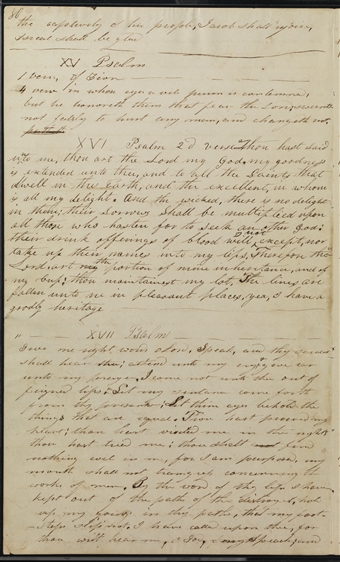 86
the captivity of his people, Jacob shall rejoice,
Israel shall be glad
XV Psalm
1 vers, of Zion
4 vers in whose eyes a vile person is contemned,
but he honoreth them that fear the Lord, sweareth
not falsly to hurt any man, and changeth not,
XVI Psalm 2d verse thou hast said
unto me, thou art the Lord my God, my goodness
is extended unto thee, and to all the Saints that
dwell in the earth, and the excellent, in whom
is all my delight. And the wicked, there is no delight
in them; their sorrows shall be multiplied upon
all those who hasten for to seek another God;
their drink offerings of blood will not accept, nor
take up their names into my lips, Therefore thou
Lord art my the portion of mine inheritance, and of
my cup; thou maintainest my lot, The lines are
fallen unto me in pleasant places, yea, I have a
goodly heritage
XVII Psalm
Give me right words O Lord, Speak, and thy servant
shall hear thee; attend unto my cry, give ear
unto my prayer, I come not unto thee out of
feigned lips; Let my sentence come forth
from thy presence; Let thine eyes behold the
things that are equal; Thou hast proved my
heart; thou hast visited me in the night;
thou hast tried me; thou shalt find
nothing evil in me, for I am purposed my
mouth shall not transgress concerning the
works of men, By the word of thy lips I have
kept out of the path of the destroyer, hold
up my goings in thy paths, that my foot-
steps slip not, I have called upon thee, for
thou wilt hear me, O God, my speech, and